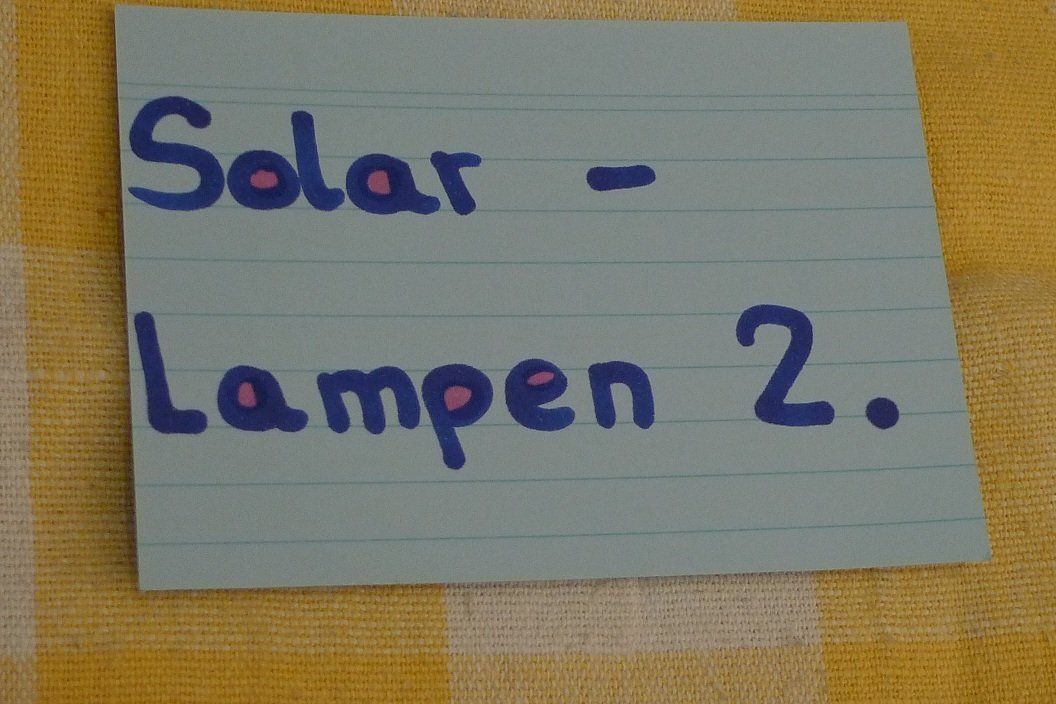 Solar -
Lampen 2.